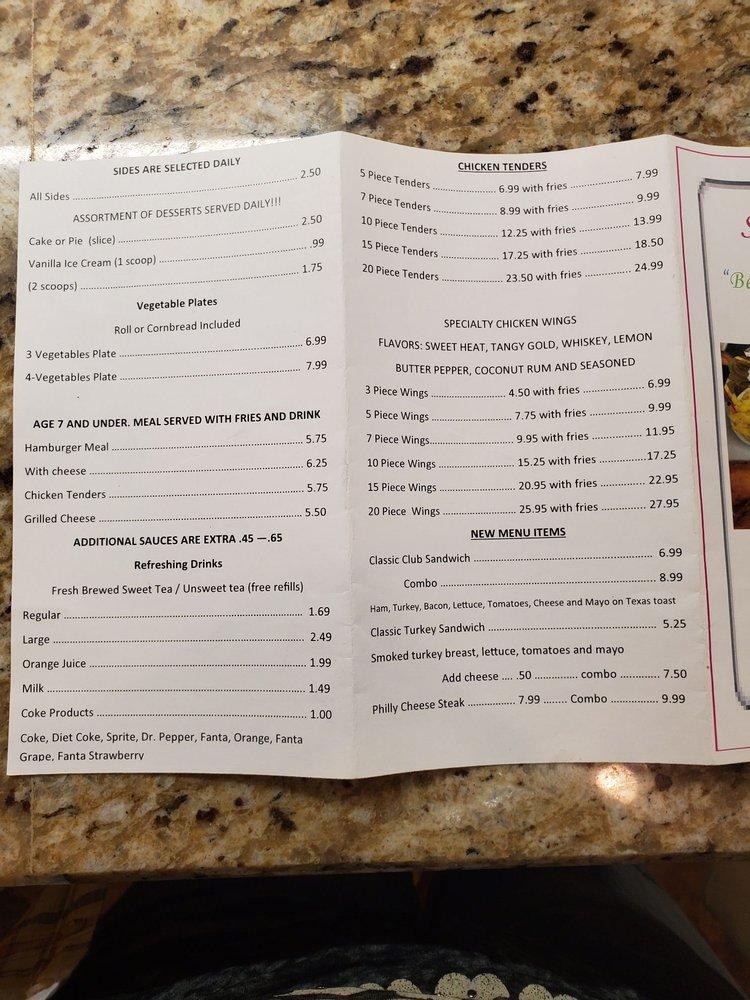 SIDES ARE SELECTED DAILY
All Sides ........ 2.50
ASSORTMENT OF DESSERTS SERVED DAILY!!!
Cake or Pie (slice) ........ 2.50
Vanilla Ice Cream (1 scoop) ........ .99
(2 scoops) ........ 1.75
Vegetable Plates
Roll or Cornbread Included
3 Vegetables Plate ........ 6.99
4-Vegetables Plate ........ 7.99
AGE 7 AND UNDER. MEAL SERVED WITH FRIES AND DRINK
Hamburger Meal ........ 5.75
With cheese ........ 6.25
Chicken Tenders ........ 5.75
Grilled Cheese ........ 5.50
ADDITIONAL SAUCES ARE EXTRA .45 —.65
Refreshing Drinks
Fresh Brewed Sweet Tea / Unsweet tea (free refills)
Regular ........ 1.69
Large ........ 2.49
Orange Juice ........ 1.99
Milk ........ 1.49
Coke Products ........ 1.00
Coke, Diet Coke, Sprite, Dr. Pepper, Fanta, Orange, Fanta
Grape, Fanta Strawberry
CHICKEN TENDERS
5 Piece Tenders ........ 6.99 with fries ........ 7.99
7 Piece Tenders ........ 8.99 with fries ........ 9.99
10 Piece Tenders ........ 12.25 with fries ........ 13.99
15 Piece Tenders ........ 17.25 with fries ........ 18.50
20 Piece Tenders ........ 23.50 with fries ........ 24.99
SPECIALTY CHICKEN WINGS
FLAVORS: SWEET HEAT, TANGY GOLD, WHISKEY, LEMON
BUTTER PEPPER, COCONUT RUM AND SEASONED
3 Piece Wings ........ 4.50 with fries ........ 6.99
5 Piece Wings ........ 7.75 with fries ........ 9.99
7 Piece Wings ........ 9.95 with fries ........ 11.95
10 Piece Wings ........ 15.25 with fries ........ 17.25
15 Piece Wings ........ 20.95 with fries ........ 22.95
20 Piece Wings ........ 25.95 with fries ........ 27.95
NEW MENU ITEMS
Classic Club Sandwich ........ 6.99
Combo ........ 8.99
Ham, Turkey, Bacon, Lettuce, Tomatoes, Cheese and Mayo on Texas toast
Classic Turkey Sandwich ........ 5.25
Smoked turkey breast, lettuce, tomatoes and mayo
Add cheese .... .50 ........ combo ........ 7.50
Philly Cheese Steak ........ 7.99 ........ Combo ........ 9.99